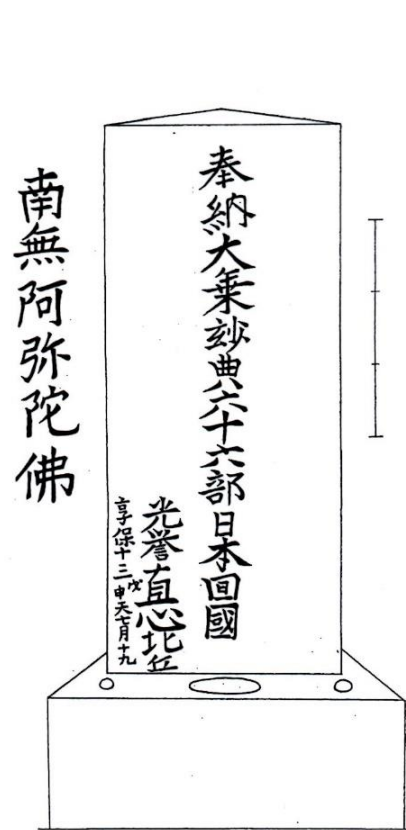 奉納大乗玅典六十六部日本回國
光誉直心比丘
享保十三戊申天七月十九
南無阿弥陀佛